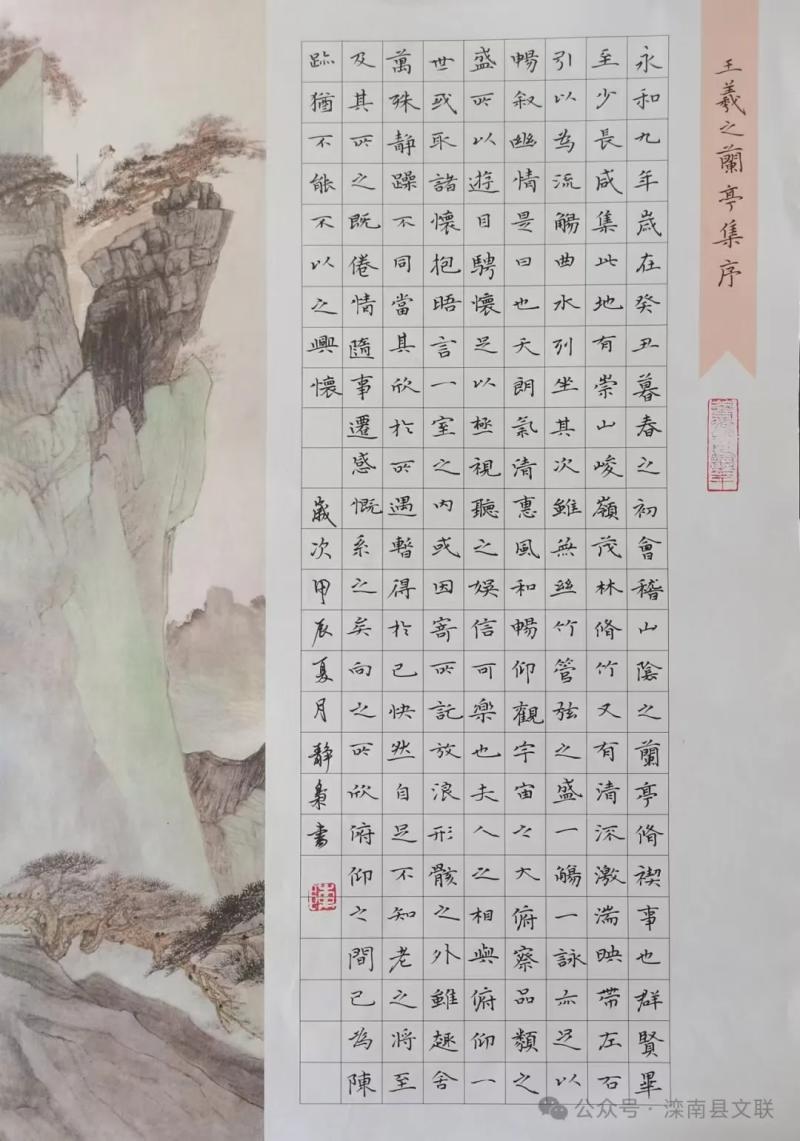 王羲之蘭亭集序
永和九年歲在癸丑暮春之初會稽山陰之蘭亭脩禊事也群賢畢
至少長咸集此地有崇山峻嶺茂林脩竹又有清深激湍映帶左右
引以為流觴曲水列坐其次雖無絲竹管弦之盛一觴一詠亦足以
暢叙幽情是日也天朗氣清惠風和暢仰觀宇宙之大俯察品類之
盛所以遊目騁懷足以極視聽之娛信可樂也夫人之相與俯仰一
世或取諸懷抱晤言一室之內或因寄所託放浪形骸之外雖趣舍
萬殊靜躁不同當其欣於所遇暫得於己快然自足不知老之將至
及其所之既倦情隨事遷感慨系之矣向之所欣俯仰之間已為陳
跡猶不能不以之興懷
歲次甲辰夏月靜梟書
公众号·滦南县文联